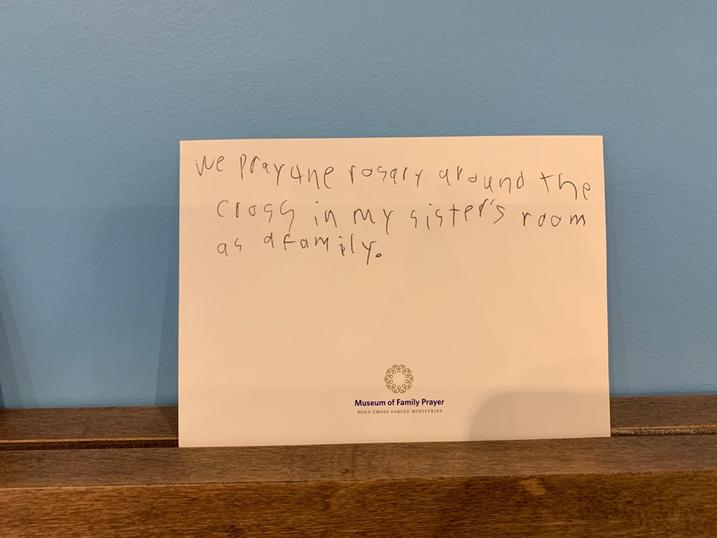 We Pray the rosary around the
cross in my sister's room
as a family.
Museum of Family Prayer
HOLY CROSS FAMILY MINISTRIES